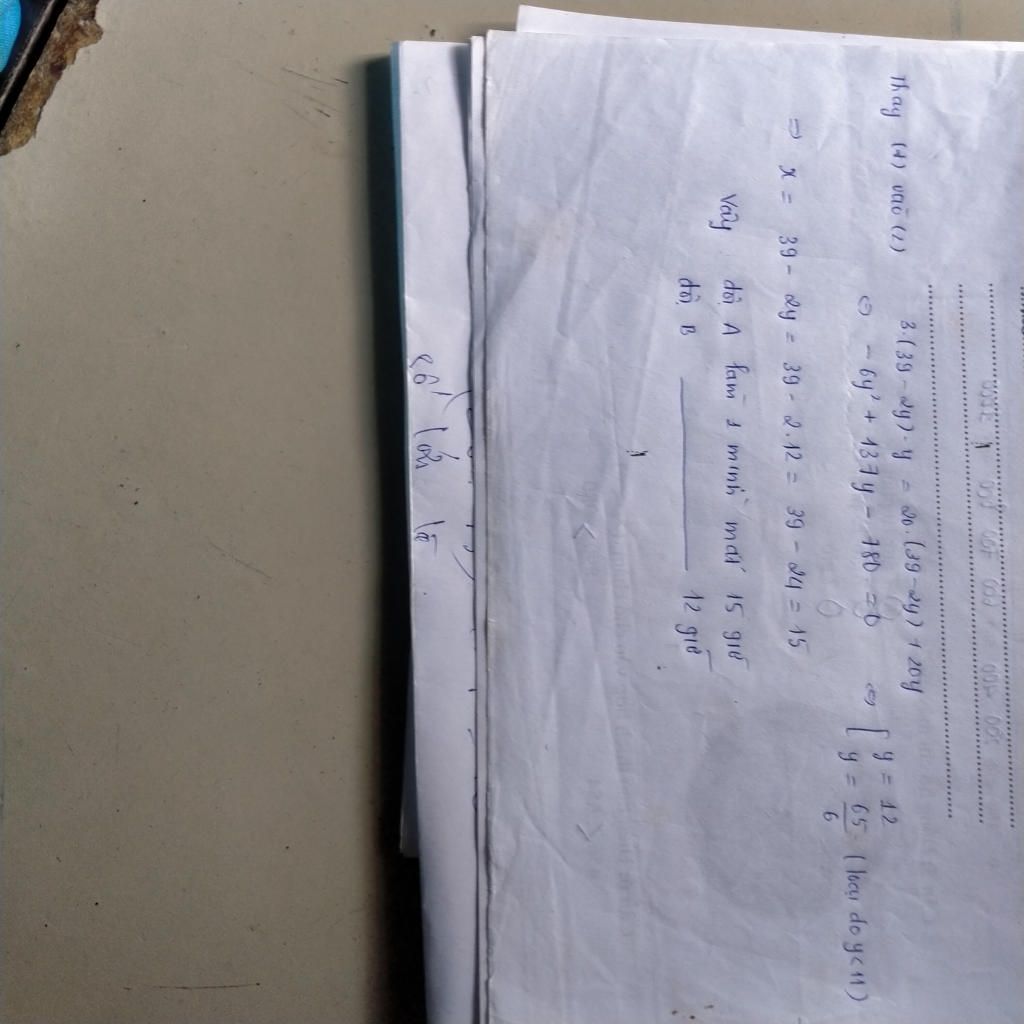 Thay (1) vào (2)
3.(39-2y).y = 20.(39-2y)+20y
⇔ -6y² + 137y - 780 = 0 ⇔ [ y = 12
[ y = 65/6 (loại do y<11)
⇒ x = 39 - 2y = 39 - 2.12 = 39 - 24 = 15
Vậy đội A làm 1 mình mất 15 giờ
đội B ———— 12 giờ